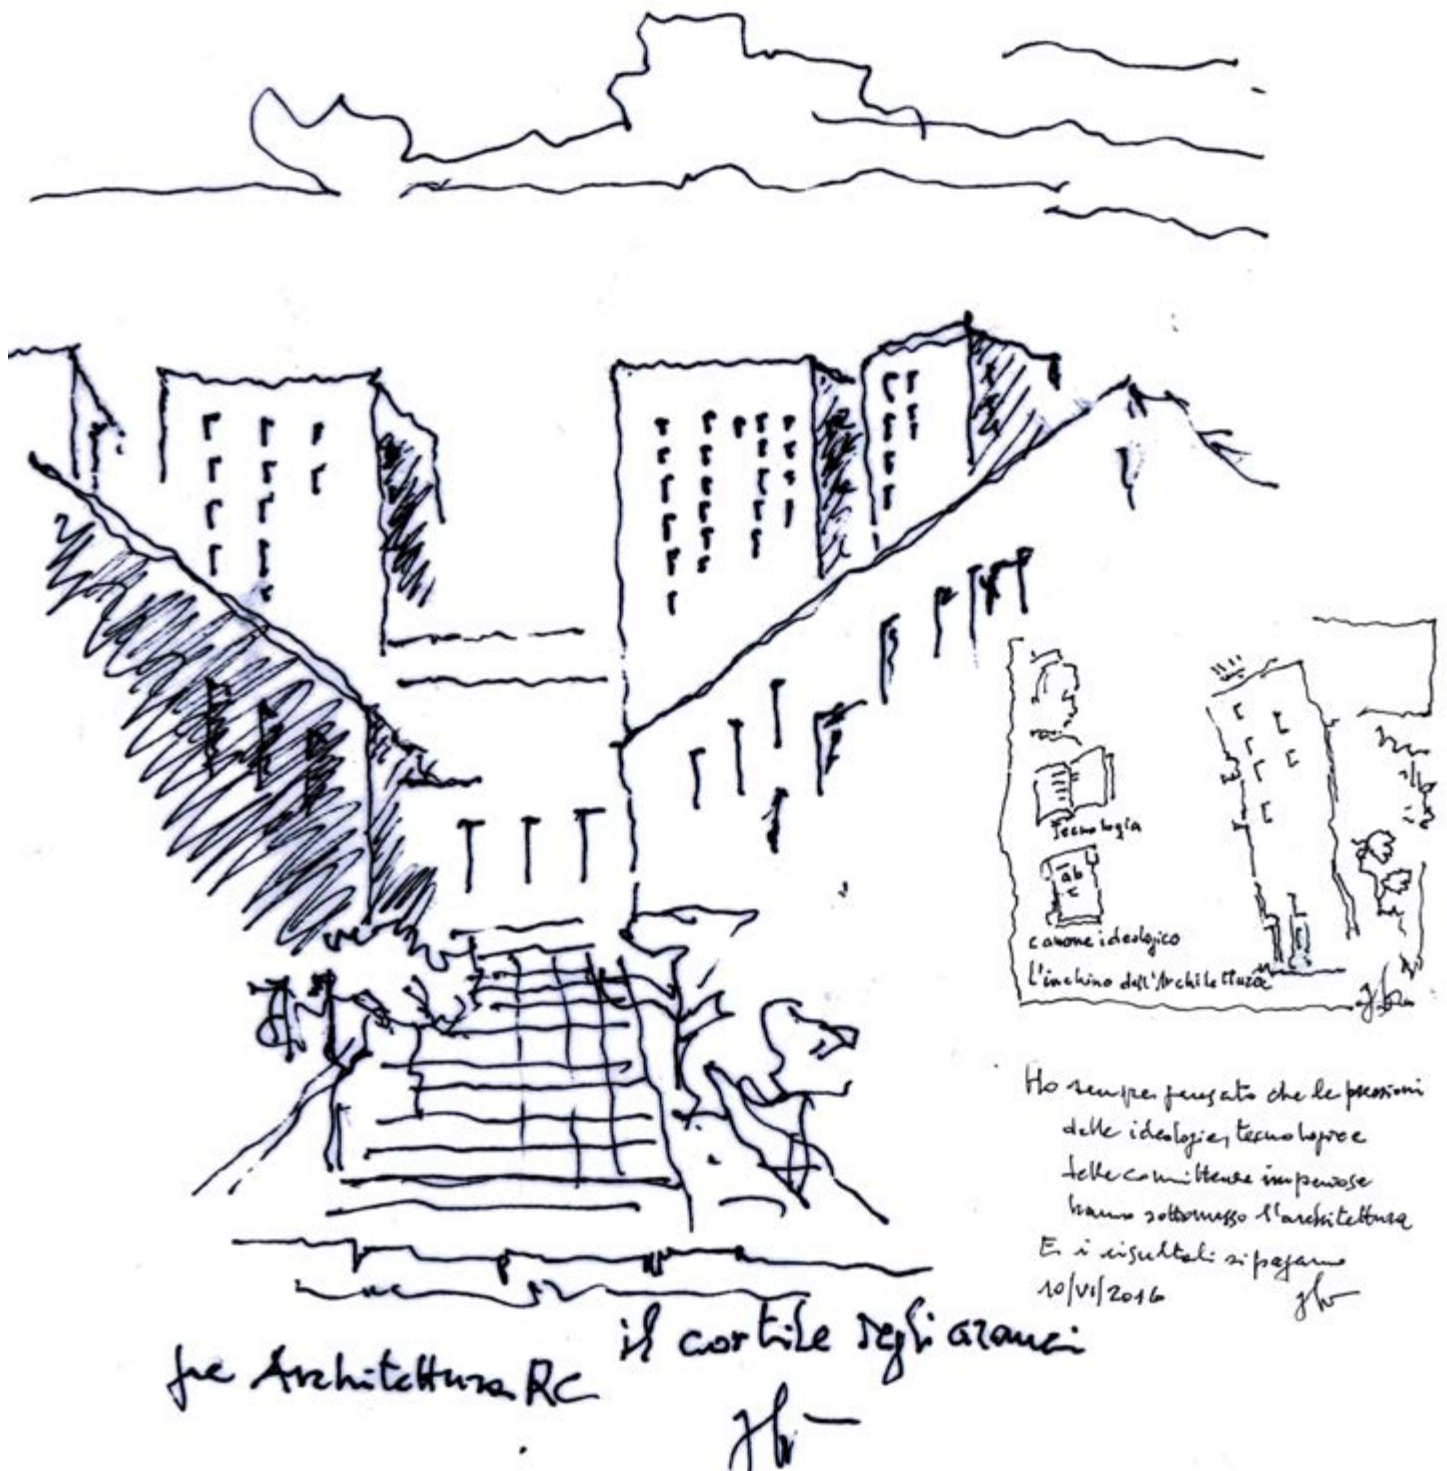 Tecnologia
ab
c
canone ideologico
l'inchino dell'Architettura
Ho sempre pensato che le pressioni
delle ideologie, tecnologie e
delle committenze imperiose
hanno sottomesso l'architettura
E i risultati si pagano
10/VI/2016
il cortile degli aranci
Architettura RC